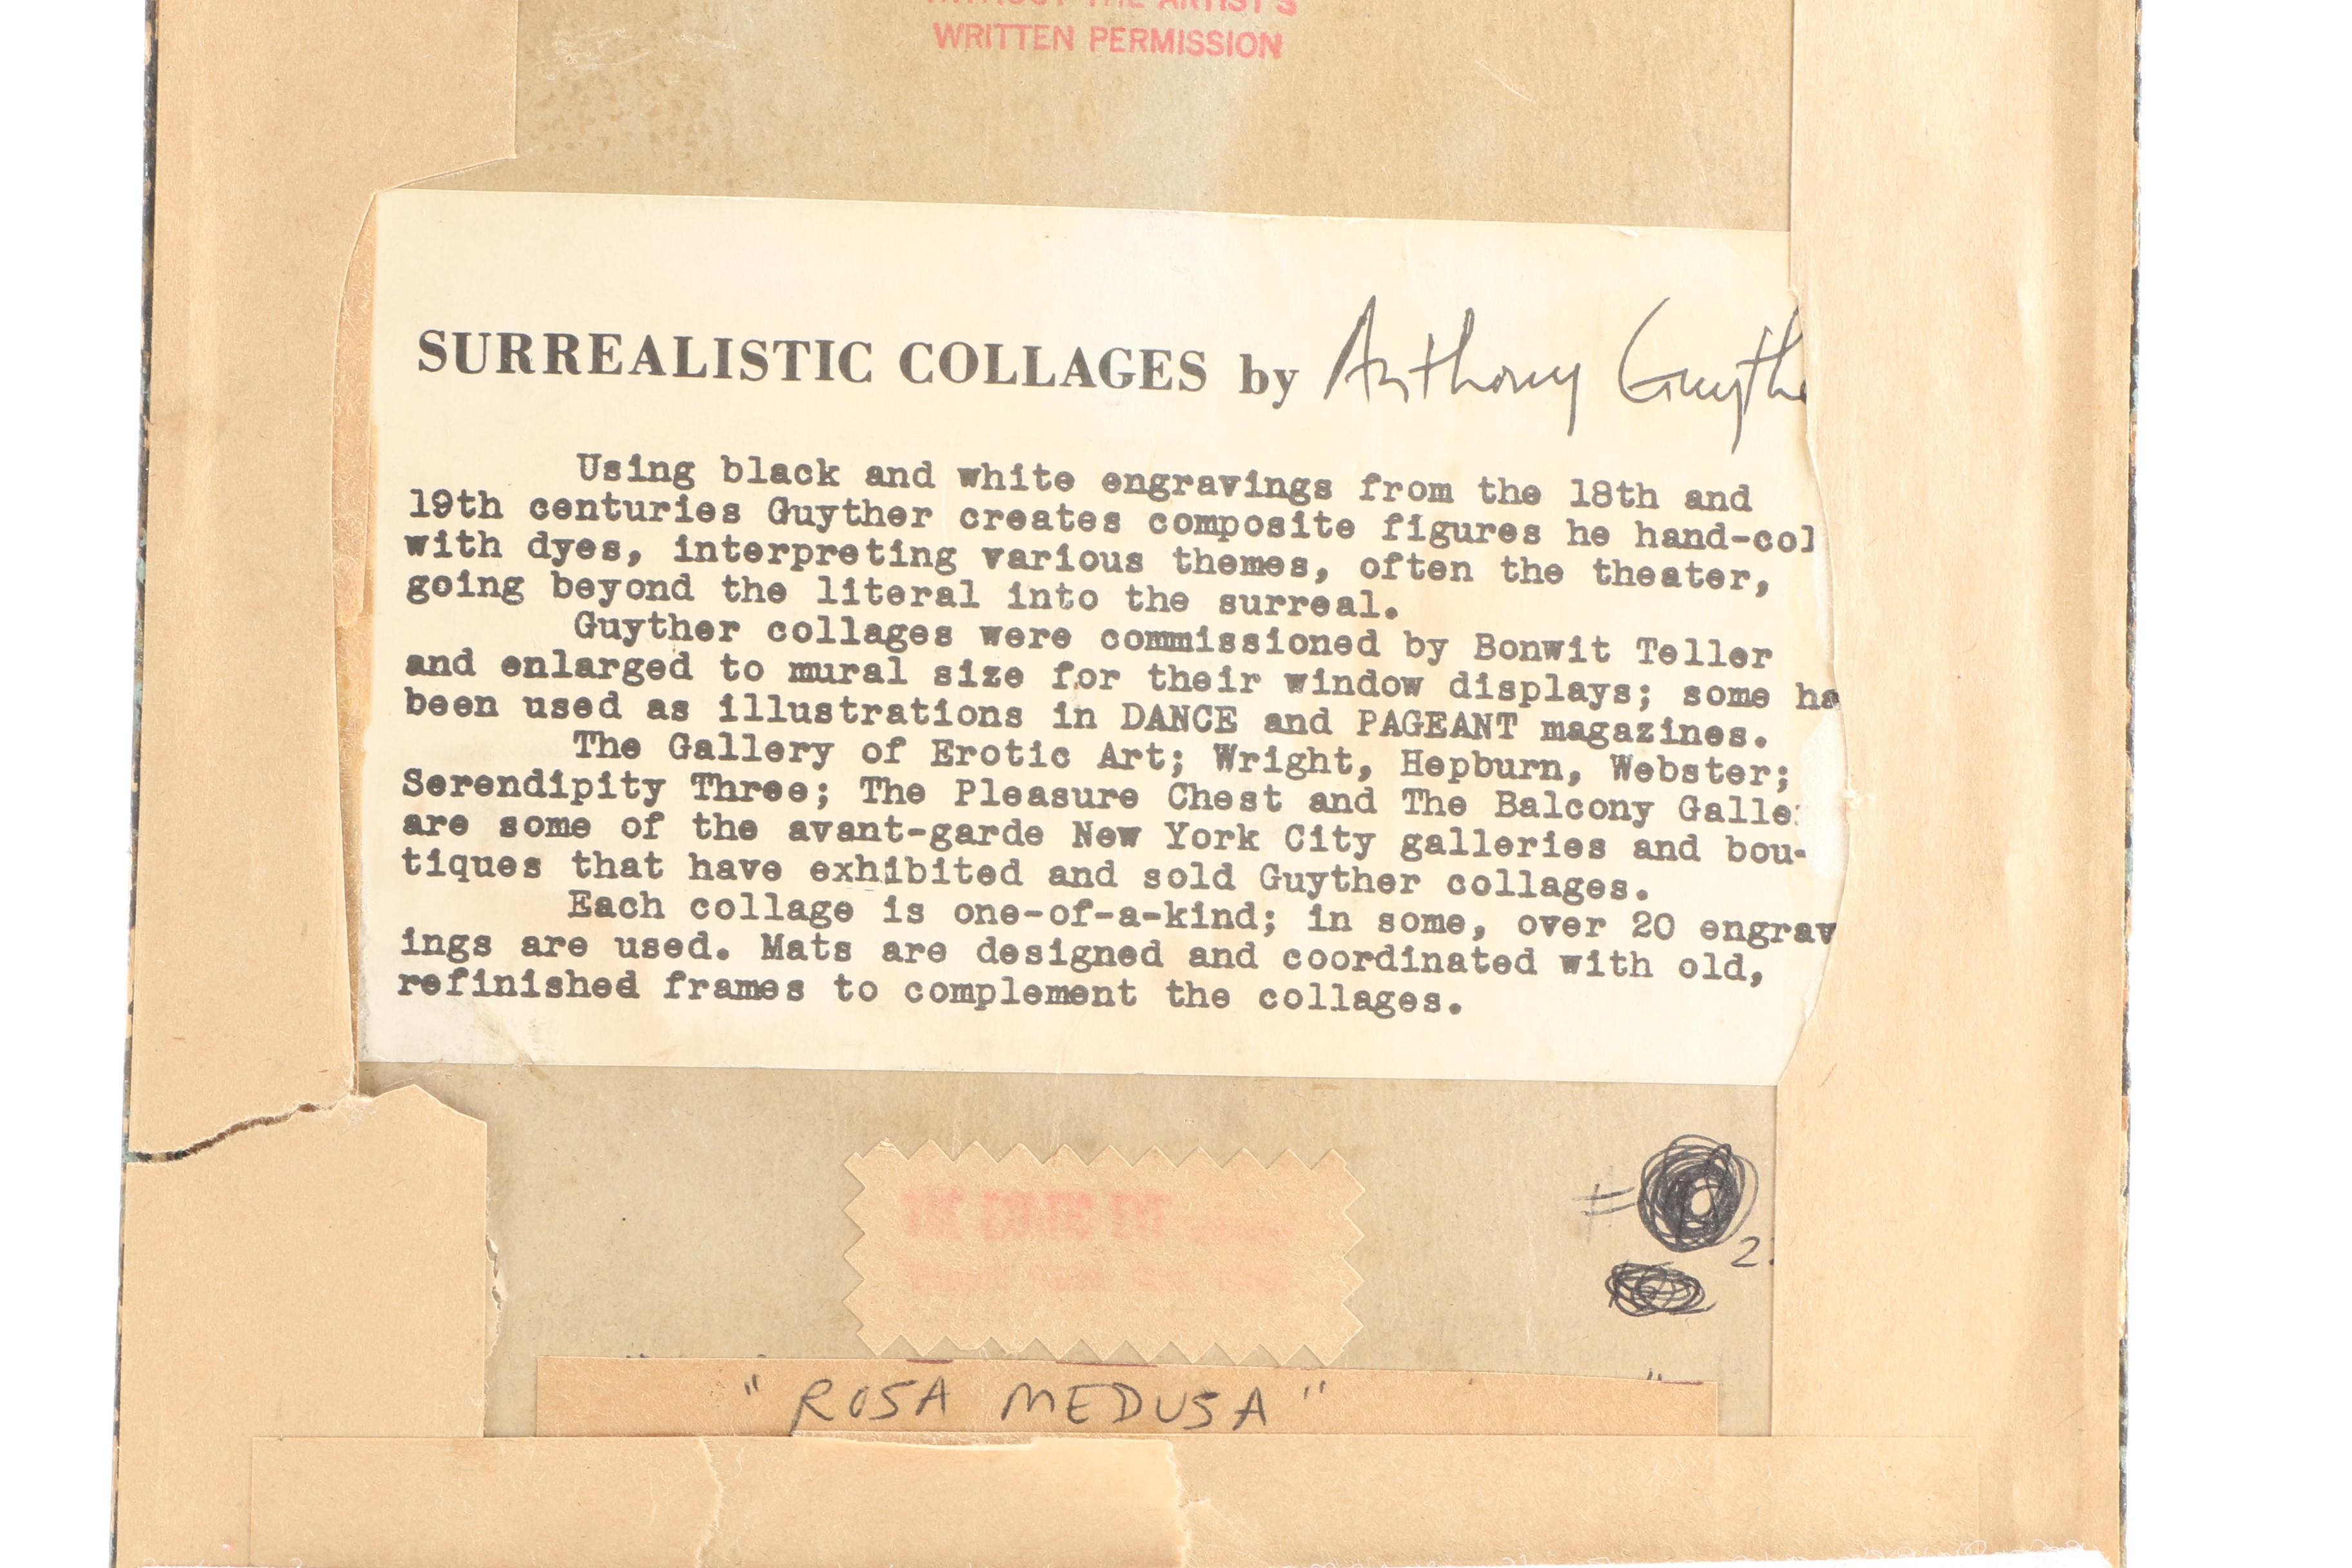 WITHOUT THE ARTIST'S
WRITTEN PERMISSION
SURREALISTIC COLLAGES by Anthony Guythe
Using black and white engravings from the 18th and
19th centuries Guyther creates composite figures he hand-col
with dyes, interpreting various themes, often the theater,
going beyond the literal into the surreal.
Guyther collages were commissioned by Bonwit Teller
and enlarged to mural size for their window displays; some ha
been used as illustrations in DANCE and PAGEANT magazines.
The Gallery of Erotic Art; Wright, Hepburn, Webster;
Serendipity Three; The Pleasure Chest and The Balcony Galle
are some of the avant-garde New York City galleries and bou-
tiques that have exhibited and sold Guyther collages.
Each collage is one-of-a-kind; in some, over 20 engrav
ings are used. Mats are designed and coordinated with old,
refinished frames to complement the collages.
2
"ROSA MEDUSA"